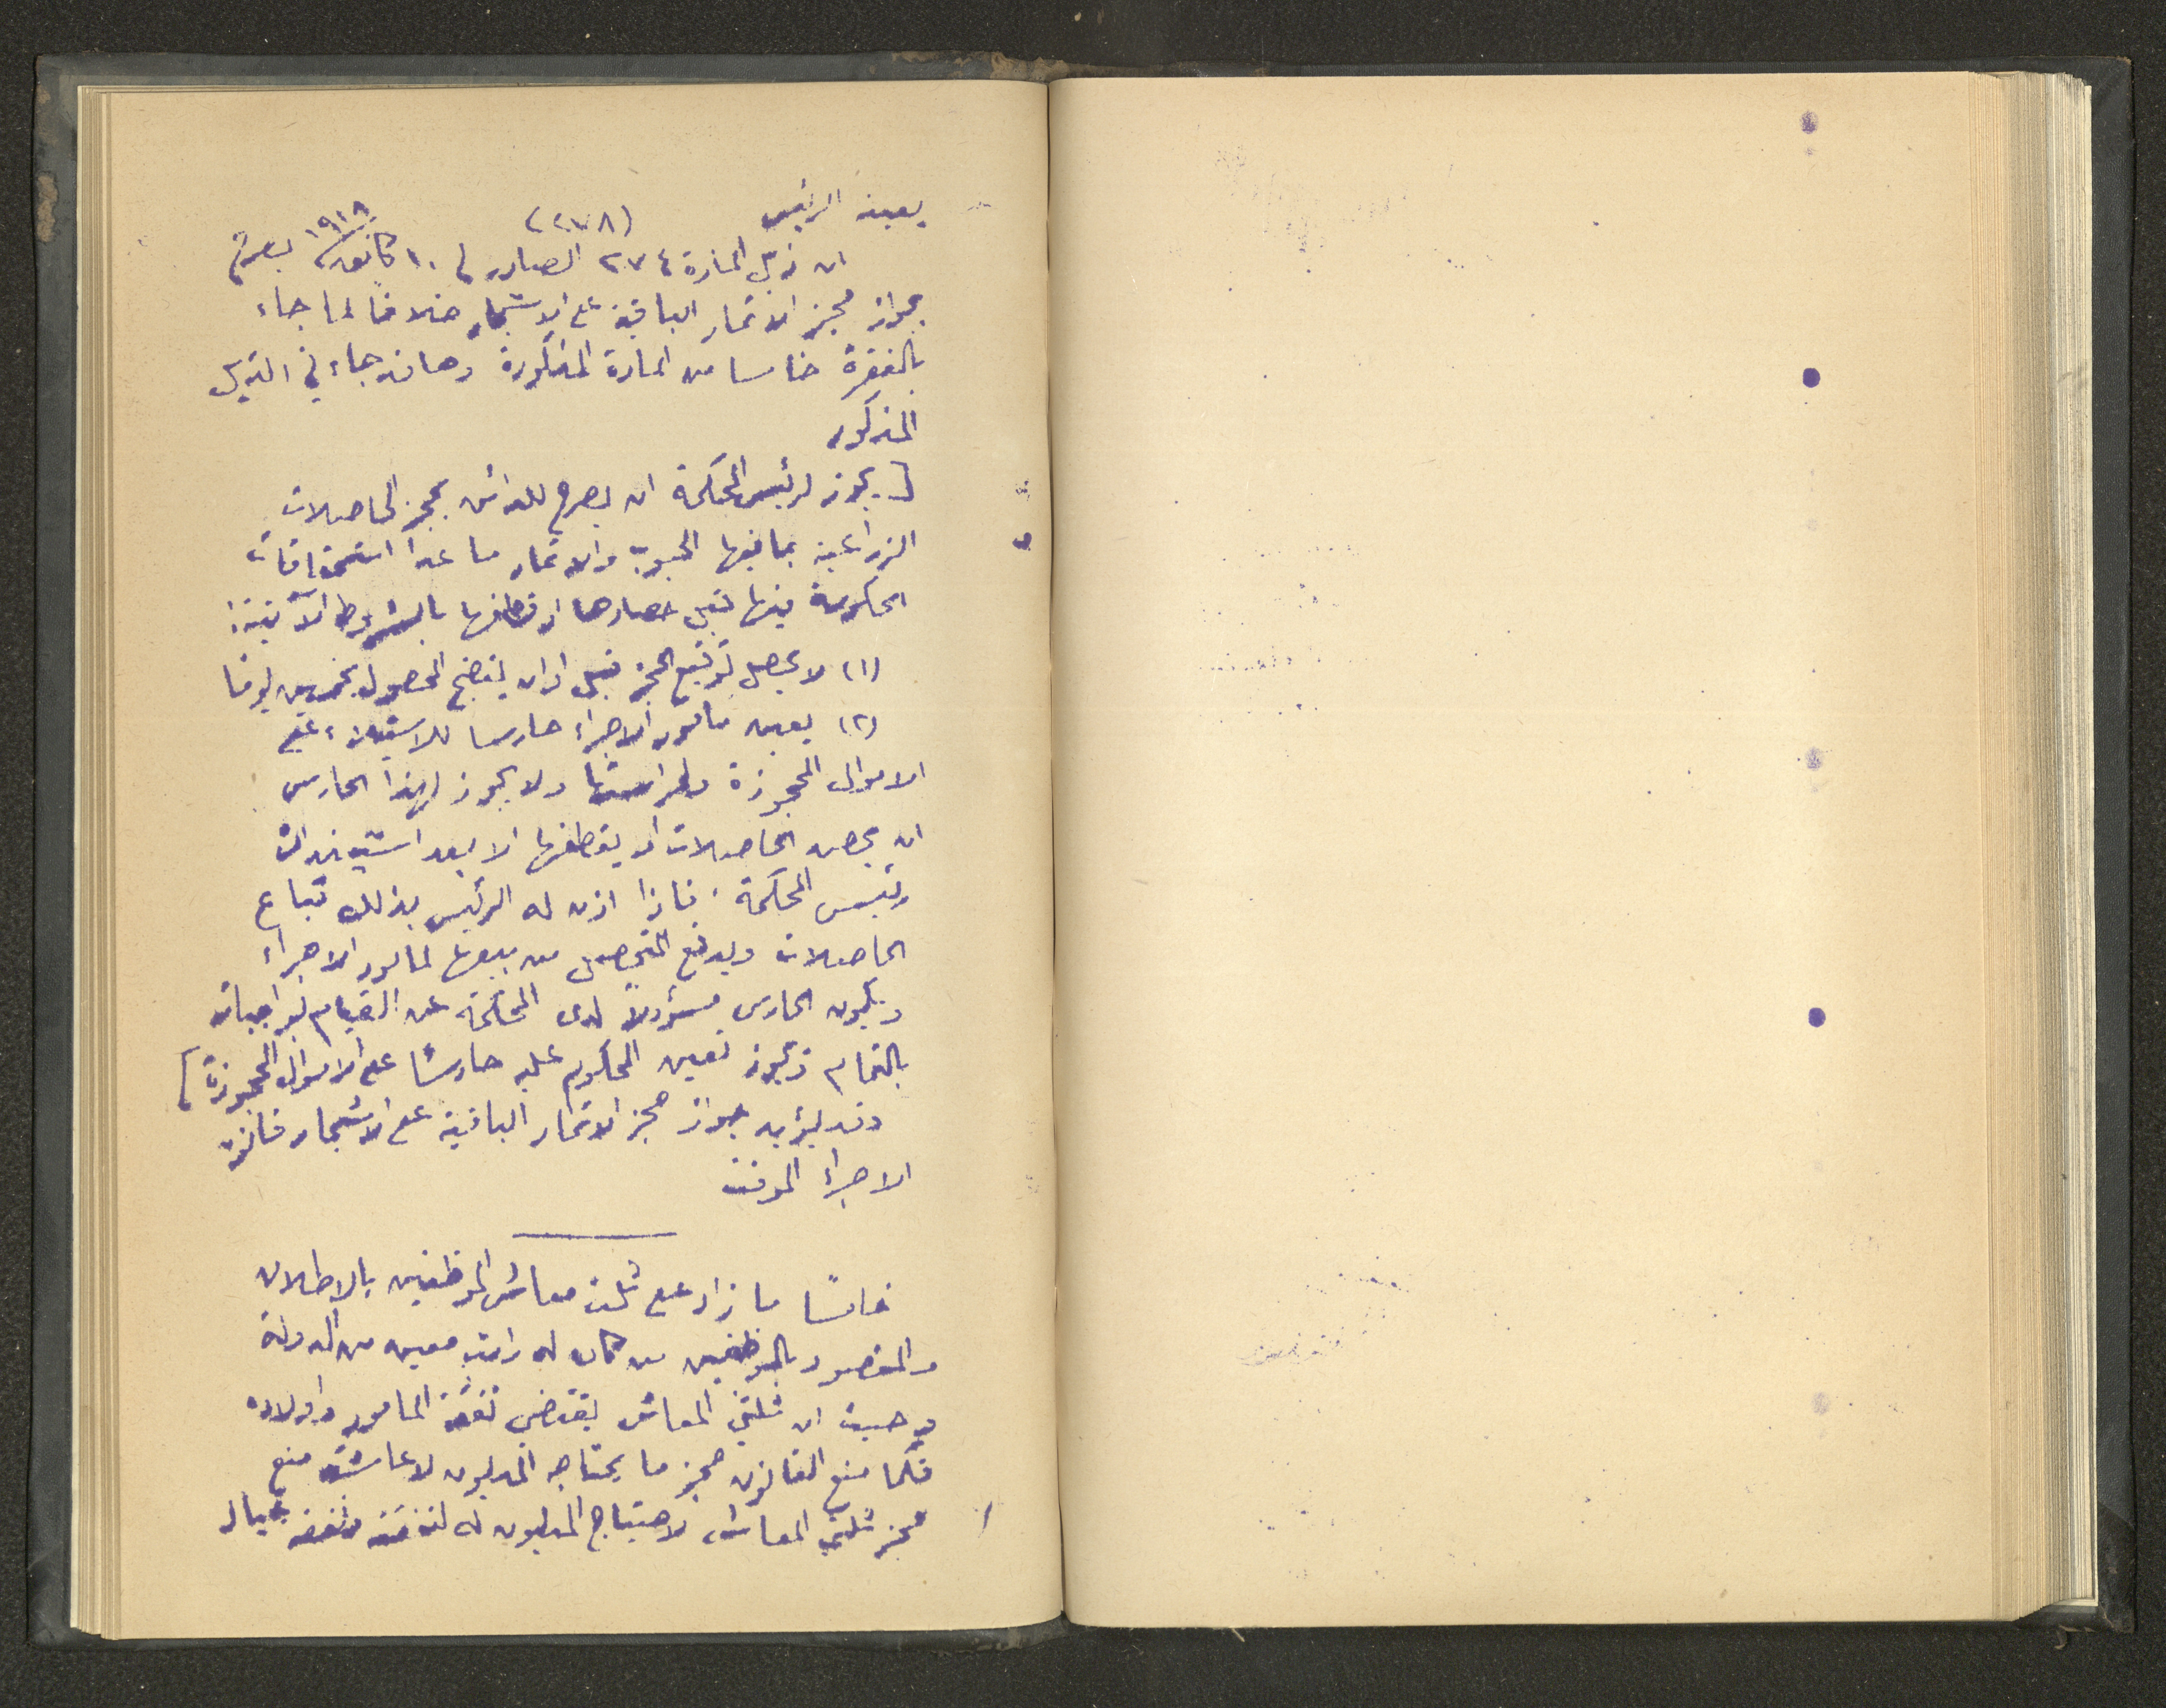 يعينه الرئيس
(٢٧٨)
ان ذيل المادة ٢٧٤ الصادر في ١٠ كانون٢ ١٩١٨ يصرح
بجواز حجز الاثمار الباقية على الاشجار خلافا لما جاء
بالفقرة خامسا من المادة المذكورة وهاقد جاء في الذيل
المذكور
[يجوز لرئيس المحكمة ان يصرح للدائن بحجز الحاصلات
الزراعية بما فيها الحبوب والاثمار ما عدا استحقاقات
الحكومة فيها قبل حصادها او قطفها بالشروط الآتية:
(١) لا يحصل توقيع الحجز قبل اوان نضج المحصول بخمسين يوما
(٢) يعين مأمور الاجراء حارسا للاستيلاء على
الاموال المحجوزة ولحراستها ولا يجوز لهذا الحارس
ان يحصد الحاصلات او يقطفها الا بعد استيذان
رئيس المحكمة. فاذا اذن له الرئيس بذلك تباع
الحاصلات ويدفع المتحصل من بيعها لمامور الاجراء
ويكون الحارس مسؤولا لدى المحكمة عن القيام بواجباته
بالتمام ويجوز تعيين المحكوم عليه حارسًا على الاموال المحجوزة]
وقد يؤيد جواز حجز الاثمار الباقية على الاشجار قانون
الاجراء الموقت
خامسًا ما زاد على ثلث معاش الموظفين بالاطلاق
والمقصود بالموظفين من كان له راتب معين من الدولة
وحيث ان ثلثي المعاش يقتضي نفقة المامور واولاده
فكما منع القانون حجز ما يحتاجه المديون لاعاشته منع
حجز ثلثي المعاش لاحتياج المديون له لنفقته ونفقة عياله